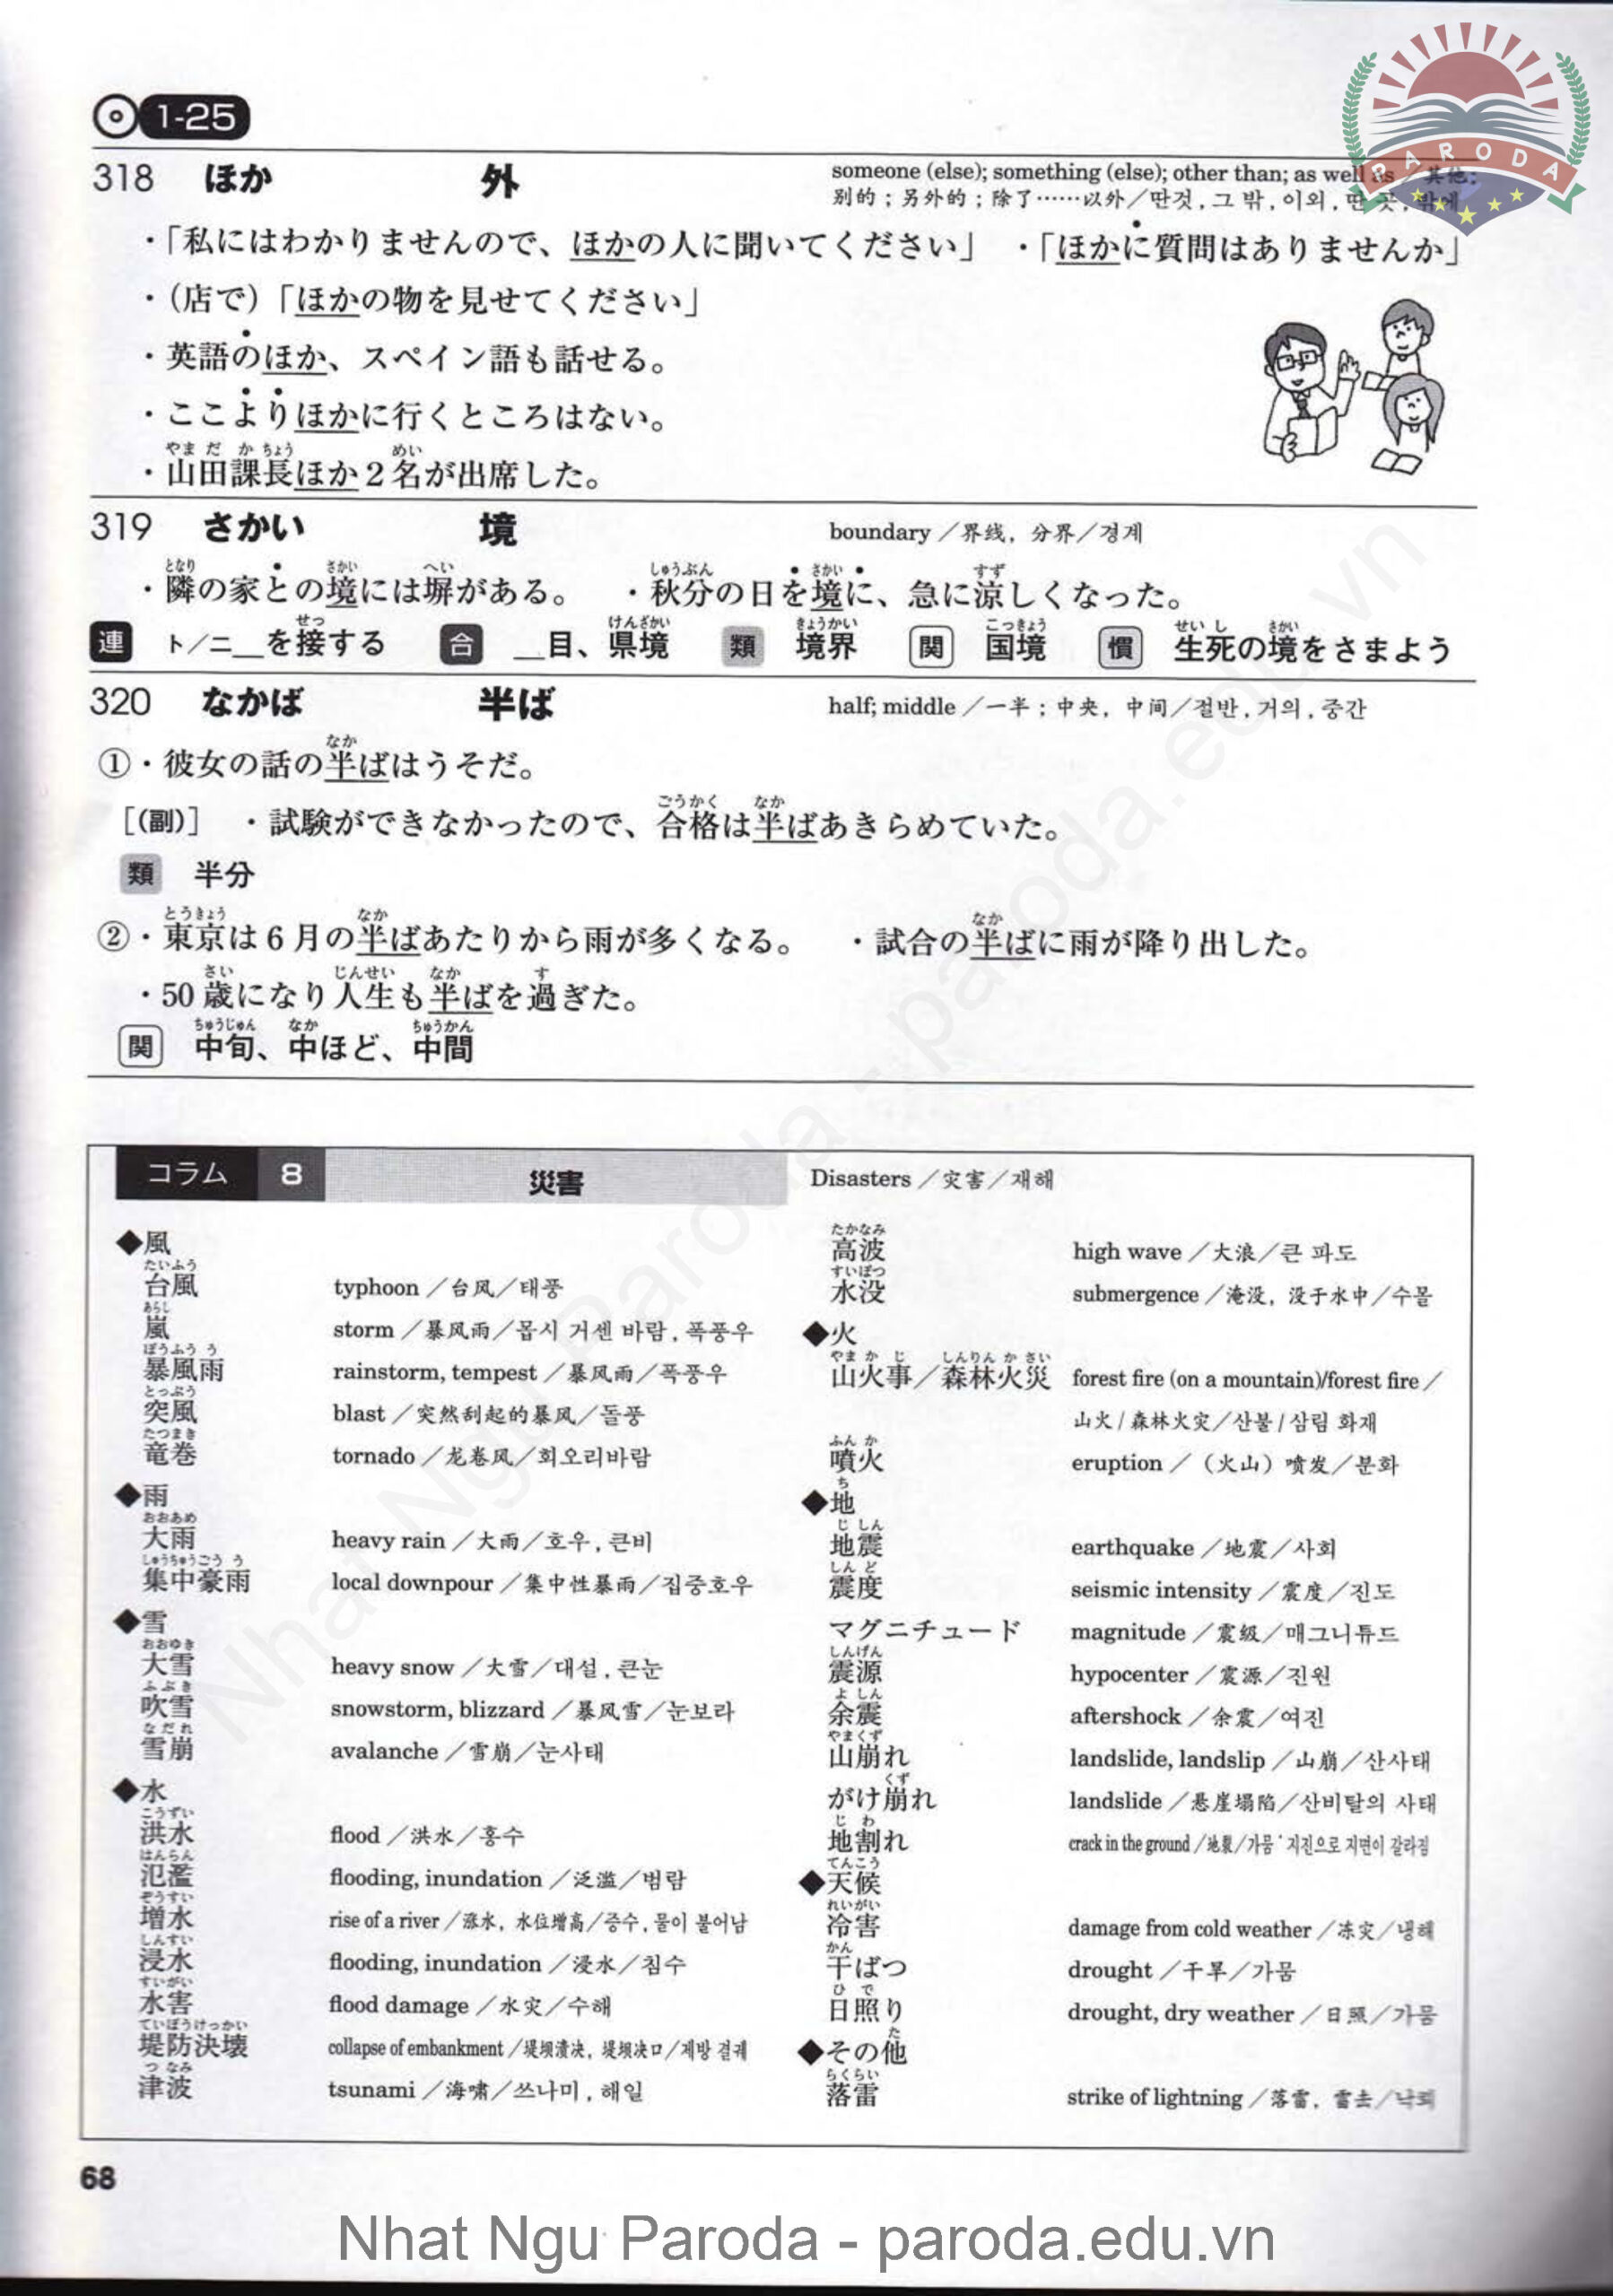 1-25
PARODA
318 ほか 外 someone (else); something (else); other than; as well as／其他；
别的；另外的；除了……以外／딴것, 그 밖, 이외, 딴 곳, 밖에
・「私にはわかりませんので、ほかの人に聞いてください」 ・「ほかに質問はありませんか」
・（店で）「ほかの物を見せてください」
・英語のほか、スペイン語も話せる。
・ここよりほかに行くところはない。
やまだかちょう めい
・山田課長ほか2名が出席した。
319 さかい 境 boundary／界线，分界／경계
となり さかい へい しゅうぶん さかい すず
・隣の家との境には塀がある。 ・秋分の日を境に、急に涼しくなった。
せっ けんざかい きょうかい こっきょう せいし さかい
連 ト／ニ＿を接する 合 ＿目、県境 類 境界 関 国境 慣 生死の境をさまよう
320 なかば 半ば half; middle／一半；中央，中间／절반, 거의, 중간
なか
①・彼女の話の半ばはうそだ。
ごうかく なか
[(副)] ・試験ができなかったので、合格は半ばあきらめていた。
類 半分
とうきょう なか なか
②・東京は6月の半ばあたりから雨が多くなる。 ・試合の半ばに雨が降り出した。
さい じんせい なか す
・50歳になり人生も半ばを過ぎた。
ちゅうじゅん なか ちゅうかん
関 中旬、中ほど、中間
コラム 8 災害 Disasters／灾害／재해
◆風
たいふう
台風 typhoon／台风／태풍
あらし
嵐 storm／暴风雨／몹시 거센 바람, 폭풍우
ぼうふうう
暴風雨 rainstorm, tempest／暴风雨／폭풍우
とっぷう
突風 blast／突然刮起的暴风／돌풍
たつまき
竜巻 tornado／龙卷风／회오리바람
◆雨
おおあめ
大雨 heavy rain／大雨／호우, 큰비
しゅうちゅうごうう
集中豪雨 local downpour／集中性暴雨／집중호우
◆雪
おおゆき
大雪 heavy snow／大雪／대설, 큰눈
ふぶき
吹雪 snowstorm, blizzard／暴风雪／눈보라
なだれ
雪崩 avalanche／雪崩／눈사태
◆水
こうずい
洪水 flood／洪水／홍수
はんらん
氾濫 flooding, inundation／泛滥／범람
ぞうすい
増水 rise of a river／涨水，水位增高／증수, 물이 불어남
しんすい
浸水 flooding, inundation／浸水／침수
すいがい
水害 flood damage／水灾／수해
ていぼうけっかい
堤防決壊 collapse of embankment／堤坝溃决，堤坝决口／제방 결궤
つなみ
津波 tsunami／海啸／쓰나미, 해일
たかなみ
高波 high wave／大浪／큰 파도
すいぼつ
水没 submergence／淹没，没于水中／수몰
◆火
やまかじ しんりんかさい
山火事／森林火災 forest fire (on a mountain)/forest fire／
山火/森林火灾／산불/삼림 화재
ふんか
噴火 eruption／（火山）喷发／분화
ち
◆地
じしん
地震 earthquake／地震／사회
しんど
震度 seismic intensity／震度／진도
マグニチュード magnitude／震级／매그니튜드
しんげん
震源 hypocenter／震源／진원
よしん
余震 aftershock／余震／여진
やまくず
山崩れ landslide, landslip／山崩／산사태
くず
がけ崩れ landslide／悬崖塌陷／산비탈의 사태
じわ
地割れ crack in the ground／地裂／가뭄·지진으로 지면이 갈라짐
てんこう
◆天候
れいがい
冷害 damage from cold weather／冻灾／냉해
かん
干ばつ drought／干旱／가뭄
ひで
日照り drought, dry weather／日照／가뭄
た
◆その他
らくらい
落雷 strike of lightning／落雷，雷击／낙뢰
68
Nhat Ngu Paroda - paroda.edu.vn
Nhat Ngu Paroda - paroda.edu.vn